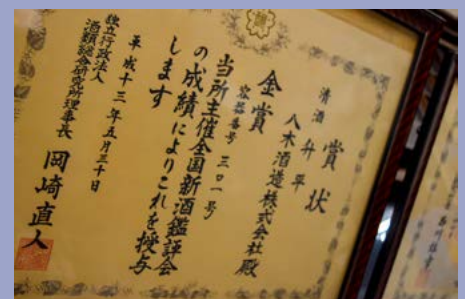 賞状
清酒 升平
八木酒造株式会社殿
金賞
容器番号 三〇一号
当所主催全国新酒鑑評会
の成績によりこれを授与
します
平成十三年五月三十日
独立行政法人
酒類総合研究所理事長
岡崎直人